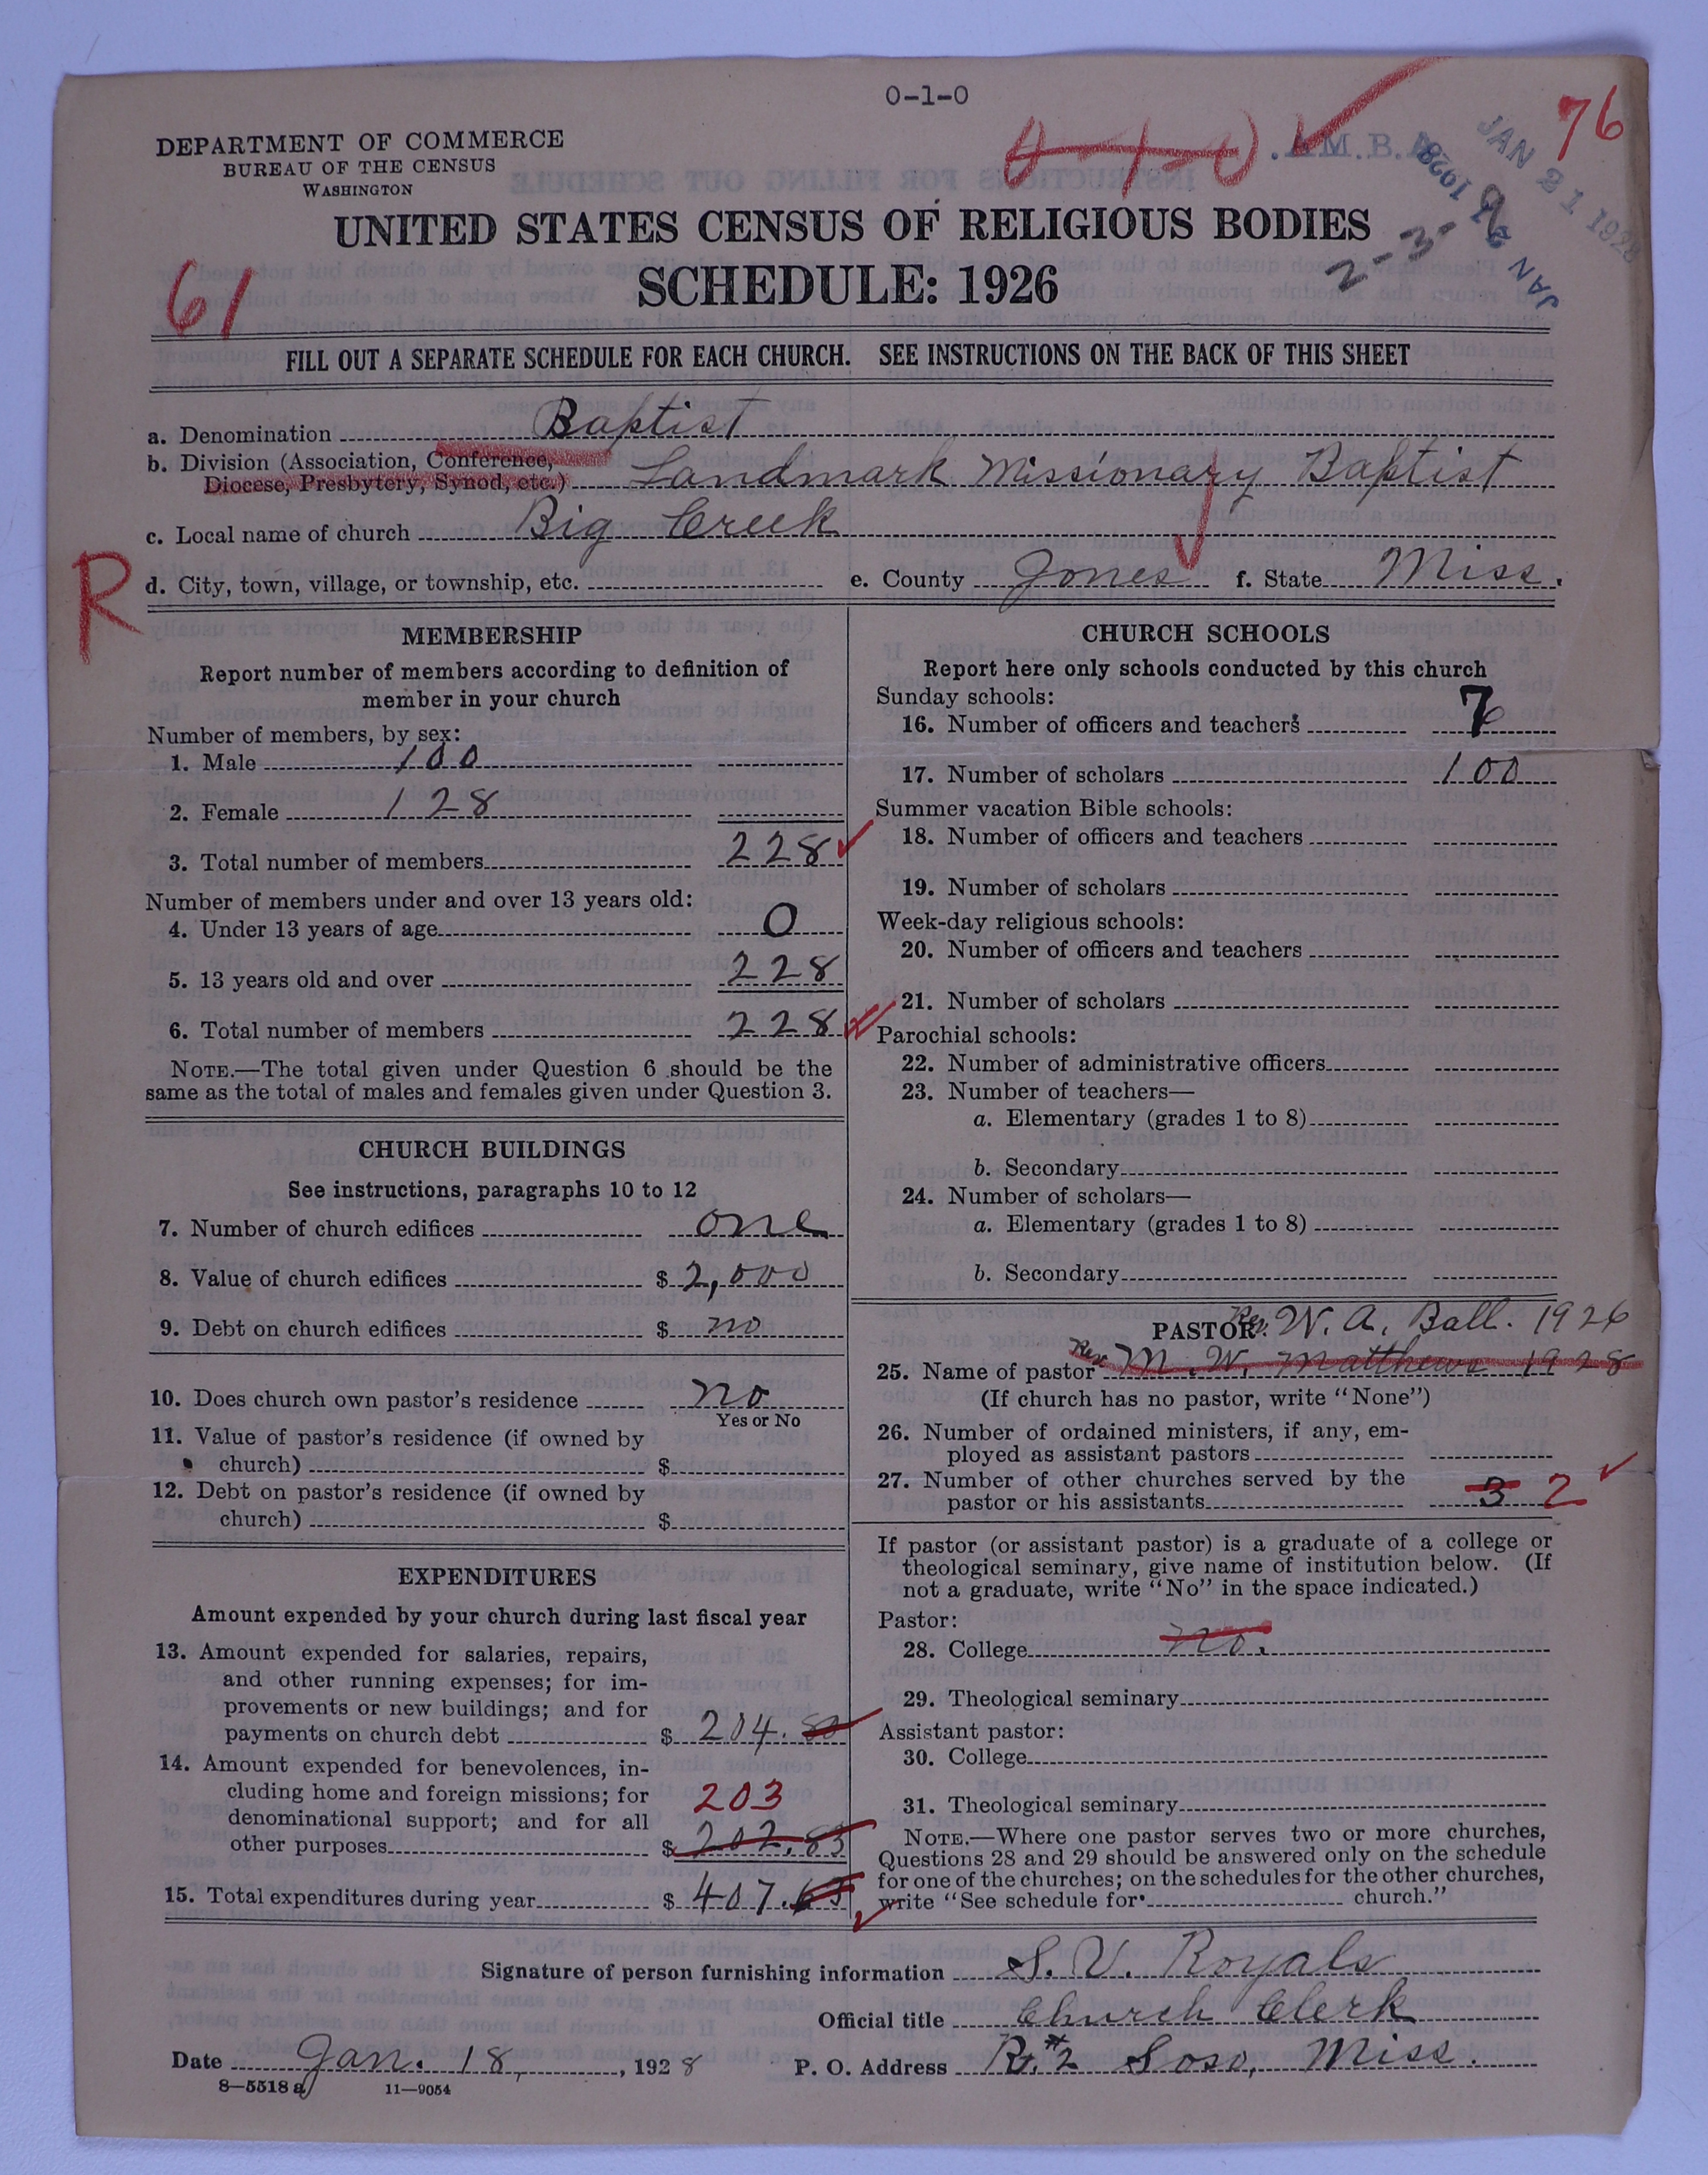 0-1-0
76
DEPARTMENT OF COMMERCE
BUREAU OF THE CENSUS
WASHINGTON
JAN 21 1928
UNITED STATES CENSUS OF RELIGIOUS BODIES
SCHEDULE: 1926
61
FILL OUT A SEPARATE SCHEDULE FOR EACH CHURCH. SEE INSTRUCTIONS ON THE BACK OF THIS SHEET
a. Denomination Baptist
b. Division (Association, Conference,
Diocese, Presbytery, Synod, etc.) Landmark Missionary Baptist
c. Local name of church Big Creek
R
d. City, town, village, or township, etc. e. County Jones f. State Miss.
MEMBERSHIP
Report number of members according to definition of
member in your church
Number of members, by sex:
1. Male 100
2. Female 128
3. Total number of members 228
Number of members under and over 13 years old:
4. Under 13 years of age 0
5. 13 years old and over 228
6. Total number of members 228
NOTE.—The total given under Question 6 should be the
same as the total of males and females given under Question 3.
CHURCH BUILDINGS
See instructions, paragraphs 10 to 12
7. Number of church edifices one
8. Value of church edifices $ 2,000
9. Debt on church edifices $ no
10. Does church own pastor's residence no
Yes or No
11. Value of pastor's residence (if owned by
church) $
12. Debt on pastor's residence (if owned by
church) $
EXPENDITURES
Amount expended by your church during last fiscal year
13. Amount expended for salaries, repairs,
and other running expenses; for im-
provements or new buildings; and for
payments on church debt $ 204.80
14. Amount expended for benevolences, in-
cluding home and foreign missions; for
denominational support; and for all
203
other purposes $ 202.83
15. Total expenditures during year $ 407.63
CHURCH SCHOOLS
Report here only schools conducted by this church
Sunday schools:
16. Number of officers and teachers 7
17. Number of scholars 100
Summer vacation Bible schools:
18. Number of officers and teachers
19. Number of scholars
Week-day religious schools:
20. Number of officers and teachers
21. Number of scholars
Parochial schools:
22. Number of administrative officers
23. Number of teachers—
a. Elementary (grades 1 to 8)
b. Secondary
24. Number of scholars—
a. Elementary (grades 1 to 8)
b. Secondary
PASTOR: Rev. W. A. Ball. 1926
25. Name of pastor Rev. M. W. Matthews 1928
(If church has no pastor, write "None")
26. Number of ordained ministers, if any, em-
ployed as assistant pastors
27. Number of other churches served by the
pastor or his assistants 3 2
If pastor (or assistant pastor) is a graduate of a college or
theological seminary, give name of institution below. (If
not a graduate, write "No" in the space indicated.)
Pastor:
28. College no.
29. Theological seminary
Assistant pastor:
30. College
31. Theological seminary
NOTE.—Where one pastor serves two or more churches,
Questions 28 and 29 should be answered only on the schedule
for one of the churches; on the schedules for the other churches,
write "See schedule for church."
Signature of person furnishing information S. V. Royals
Official title Church Clerk
Date Jan. 18, 1928 P. O. Address Rt. #2 Soso, Miss.
8—5518 a 11—9054